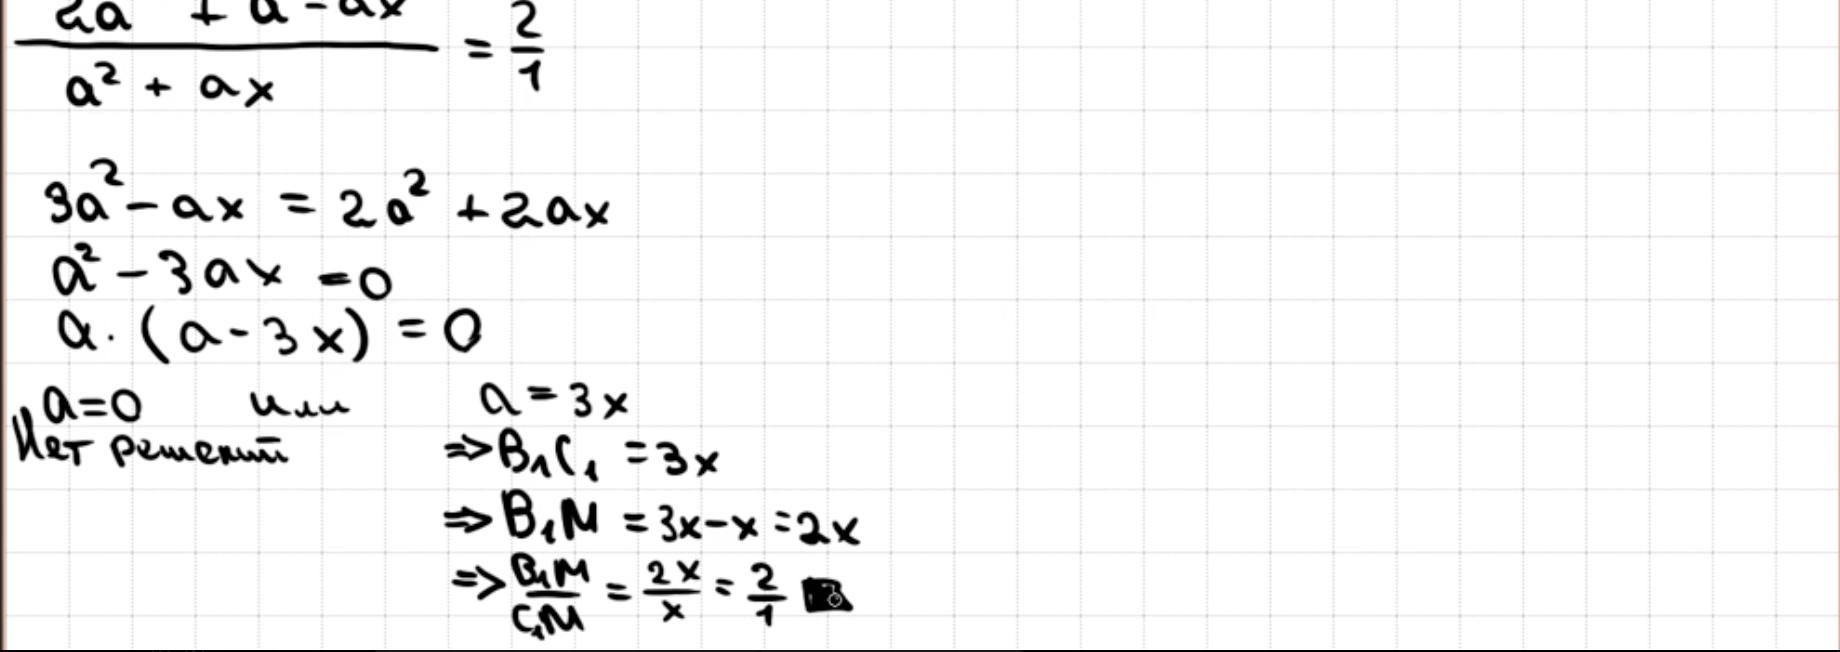 2a² + a² - ax / a² + ax = 2/1
3a² - ax = 2a² + 2ax
a² - 3ax = 0
a · (a - 3x) = 0
a = 0 или a = 3x
Нет решений ⇒ B₁C₁ = 3x
⇒ B₁M = 3x - x = 2x
⇒ B₁M / C₁M = 2x / x = 2/1 ■